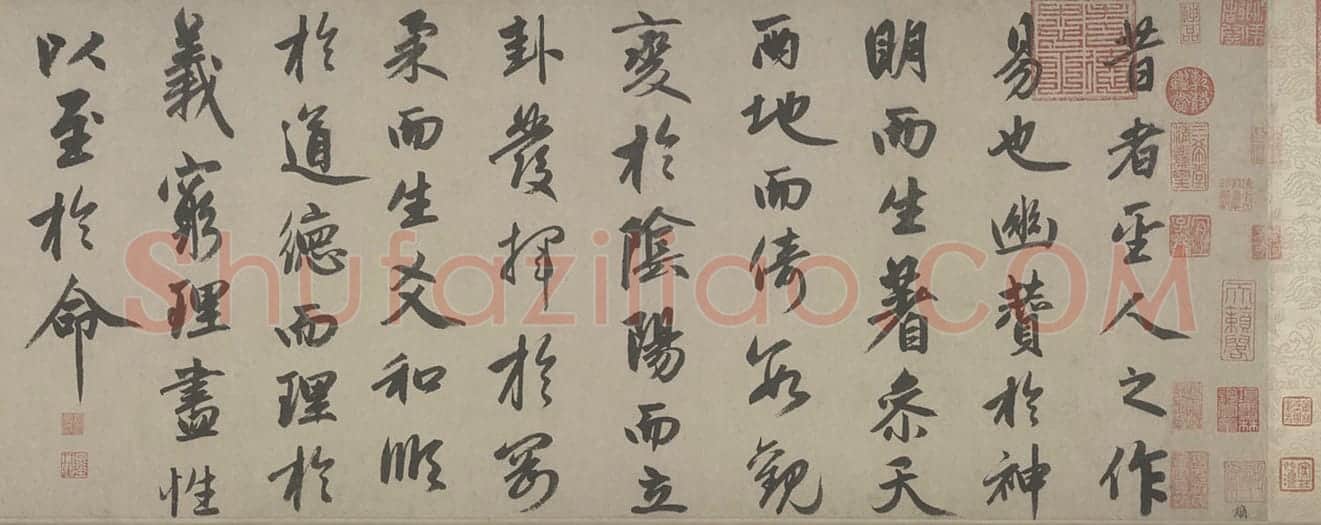 昔者聖人之作
易也幽贊於神
明而生蓍參天
兩地而倚數觀
變於陰陽而立
卦發揮於剛
柔而生爻和順
於道德而理於
義窮理盡性
以至於命
天籟閣
Shufaziliao.COM